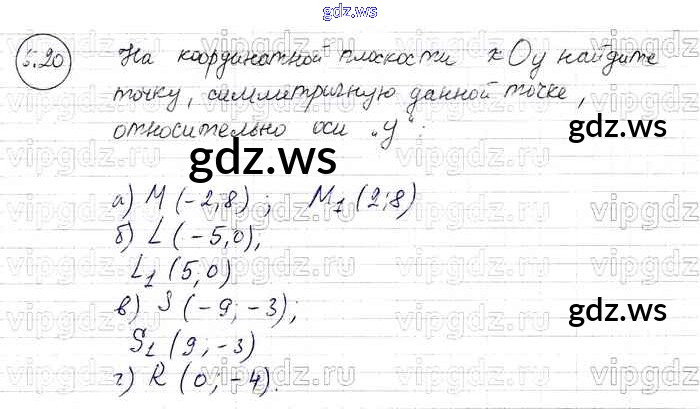 gdz.ws
5.20 На координатной плоскости xOy найдите
точку, симметричную данной точке,
относительно оси „y“:
gdz.ws
gdz.ws
а) M (-2;8); M1 (2;8)
б) L (-5,0),
L1 (5,0)
в) S (-9;-3);
gdz.ws
S1 (9;-3)
г) R (0;-4).
gdz.ws